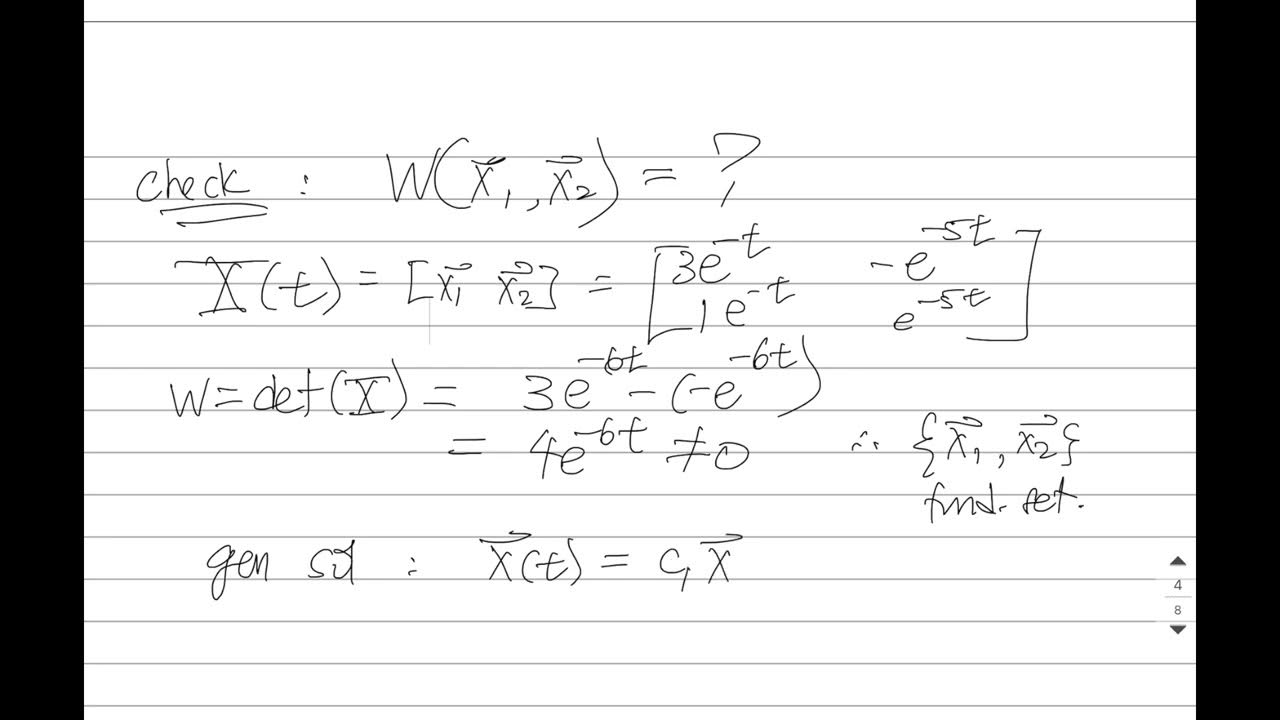 check : W(x⃗₁, x⃗₂) = ?
X(t) = [x⃗₁ x⃗₂] = [3e^{-t} -e^{-5t}
1e^{-t} e^{-5t}]
W = det(X) = 3e^{-6t} - (-e^{-6t})
= 4e^{-6t} ≠ 0 ∴ {x⃗₁, x⃗₂}
fund. set.
gen sol : x⃗(t) = c₁ x⃗
4
8